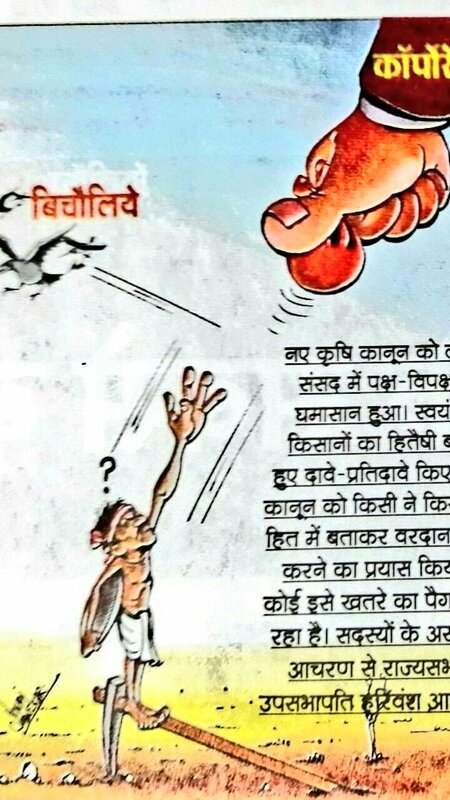 कॉर्पोरे
बिचौलिये
नए कृषि कानून को ल
संसद में पक्ष-विपक्ष
घमासान हुआ। स्वयं
किसानों का हितैषी ब
हुए दावे-प्रतिदावे किए
कानून को किसी ने कि
हित में बताकर वरदान
करने का प्रयास किय
कोई इसे खतरे का पैग
रहा है। सदस्यों के अस
आचरण से राज्यसभ
उपसभापति हरिवंश आ
?